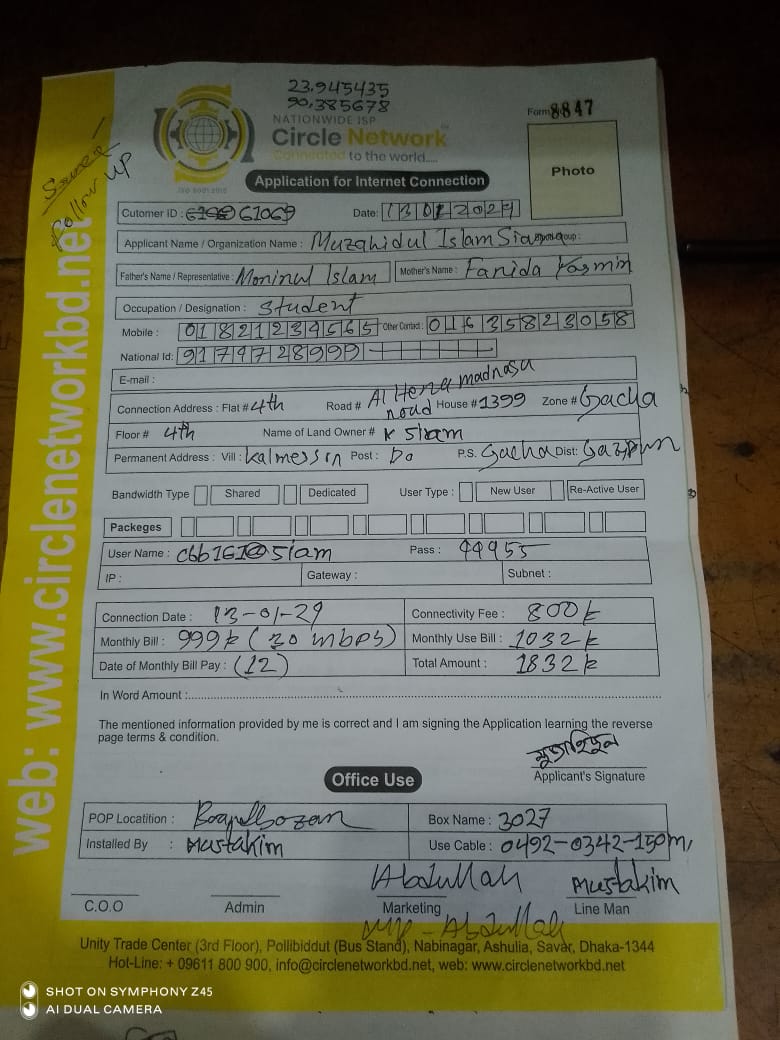 23.945435
90.385678
NATIONWIDE ISP
Circle Network
Connected to the world.....
ISO 9001:2015
Form 8847
Photo
Follow UP
Application for Internet Connection
Cutomer ID : 61069
Date: 13 01 2024
Applicant Name / Organization Name : Muzahidul Islam Siam
Father's Name / Representative : Moninul Islam Mother's Name : Fanida Yasmin
Occupation / Designation : Student
Mobile : 01821234565 Other Contact : 01635823058
National Id: 9174728999
E-mail :
Connection Address : Flat # 4th Road # Al Hera madnasa road House # 1399 Zone # Gacha
Floor # 4th Name of Land Owner # K Siam
Permanent Address : Vill : Kalmessn Post : Do P.S. Gacha Dist: Gazipun
Bandwidth Type Shared Dedicated User Type : New User Re-Active User
Packeges
User Name : cbb161@siam Pass : 99955
IP : Gateway : Subnet :
Connection Date : 13-01-24 Connectivity Fee : 800k
Monthly Bill : 999k (30 mbps) Monthly Use Bill : 1032k
Date of Monthly Bill Pay : (12) Total Amount : 1832k
In Word Amount :
The mentioned information provided by me is correct and I am signing the Application learning the reverse
page terms & condition.
মুজাহিদুল
Applicant's Signature
Office Use
POP Locatition : Box Name : 3027
Installed By : Mustakim Use Cable : 0492-0342-150m,
Abdullah Mustakim
C.O.O Admin Marketing Line Man
Abdullah
Unity Trade Center (3rd Floor), Pollibiddut (Bus Stand), Nabinagar, Ashulia, Savar, Dhaka-1344
Hot-Line: + 09611 800 900, info@circlenetworkbd.net, web: www.circlenetworkbd.net
web: www.circlenetworkbd.net
SHOT ON SYMPHONY Z45
AI DUAL CAMERA